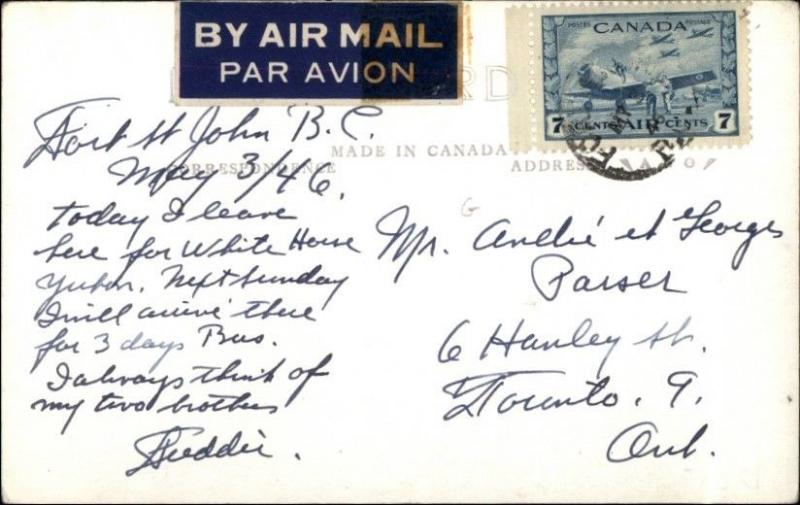 BY AIR MAIL
PAR AVION
POSTES POSTAGE
CANADA
7 CENTS AIR CENTS 7
Fort St John B.C.
MADE IN CANADA
CORRESPONDENCE
ADDRESS
May 3/46.
today I leave
here for White Horse
Yukon. Next Sunday
I will arrive there
for 3 days Bus.
I always think of
my two brothers
Freddie.
Mr. André et Georges
Parser
6 Hanley St.
Toronto. 9.
Ont.